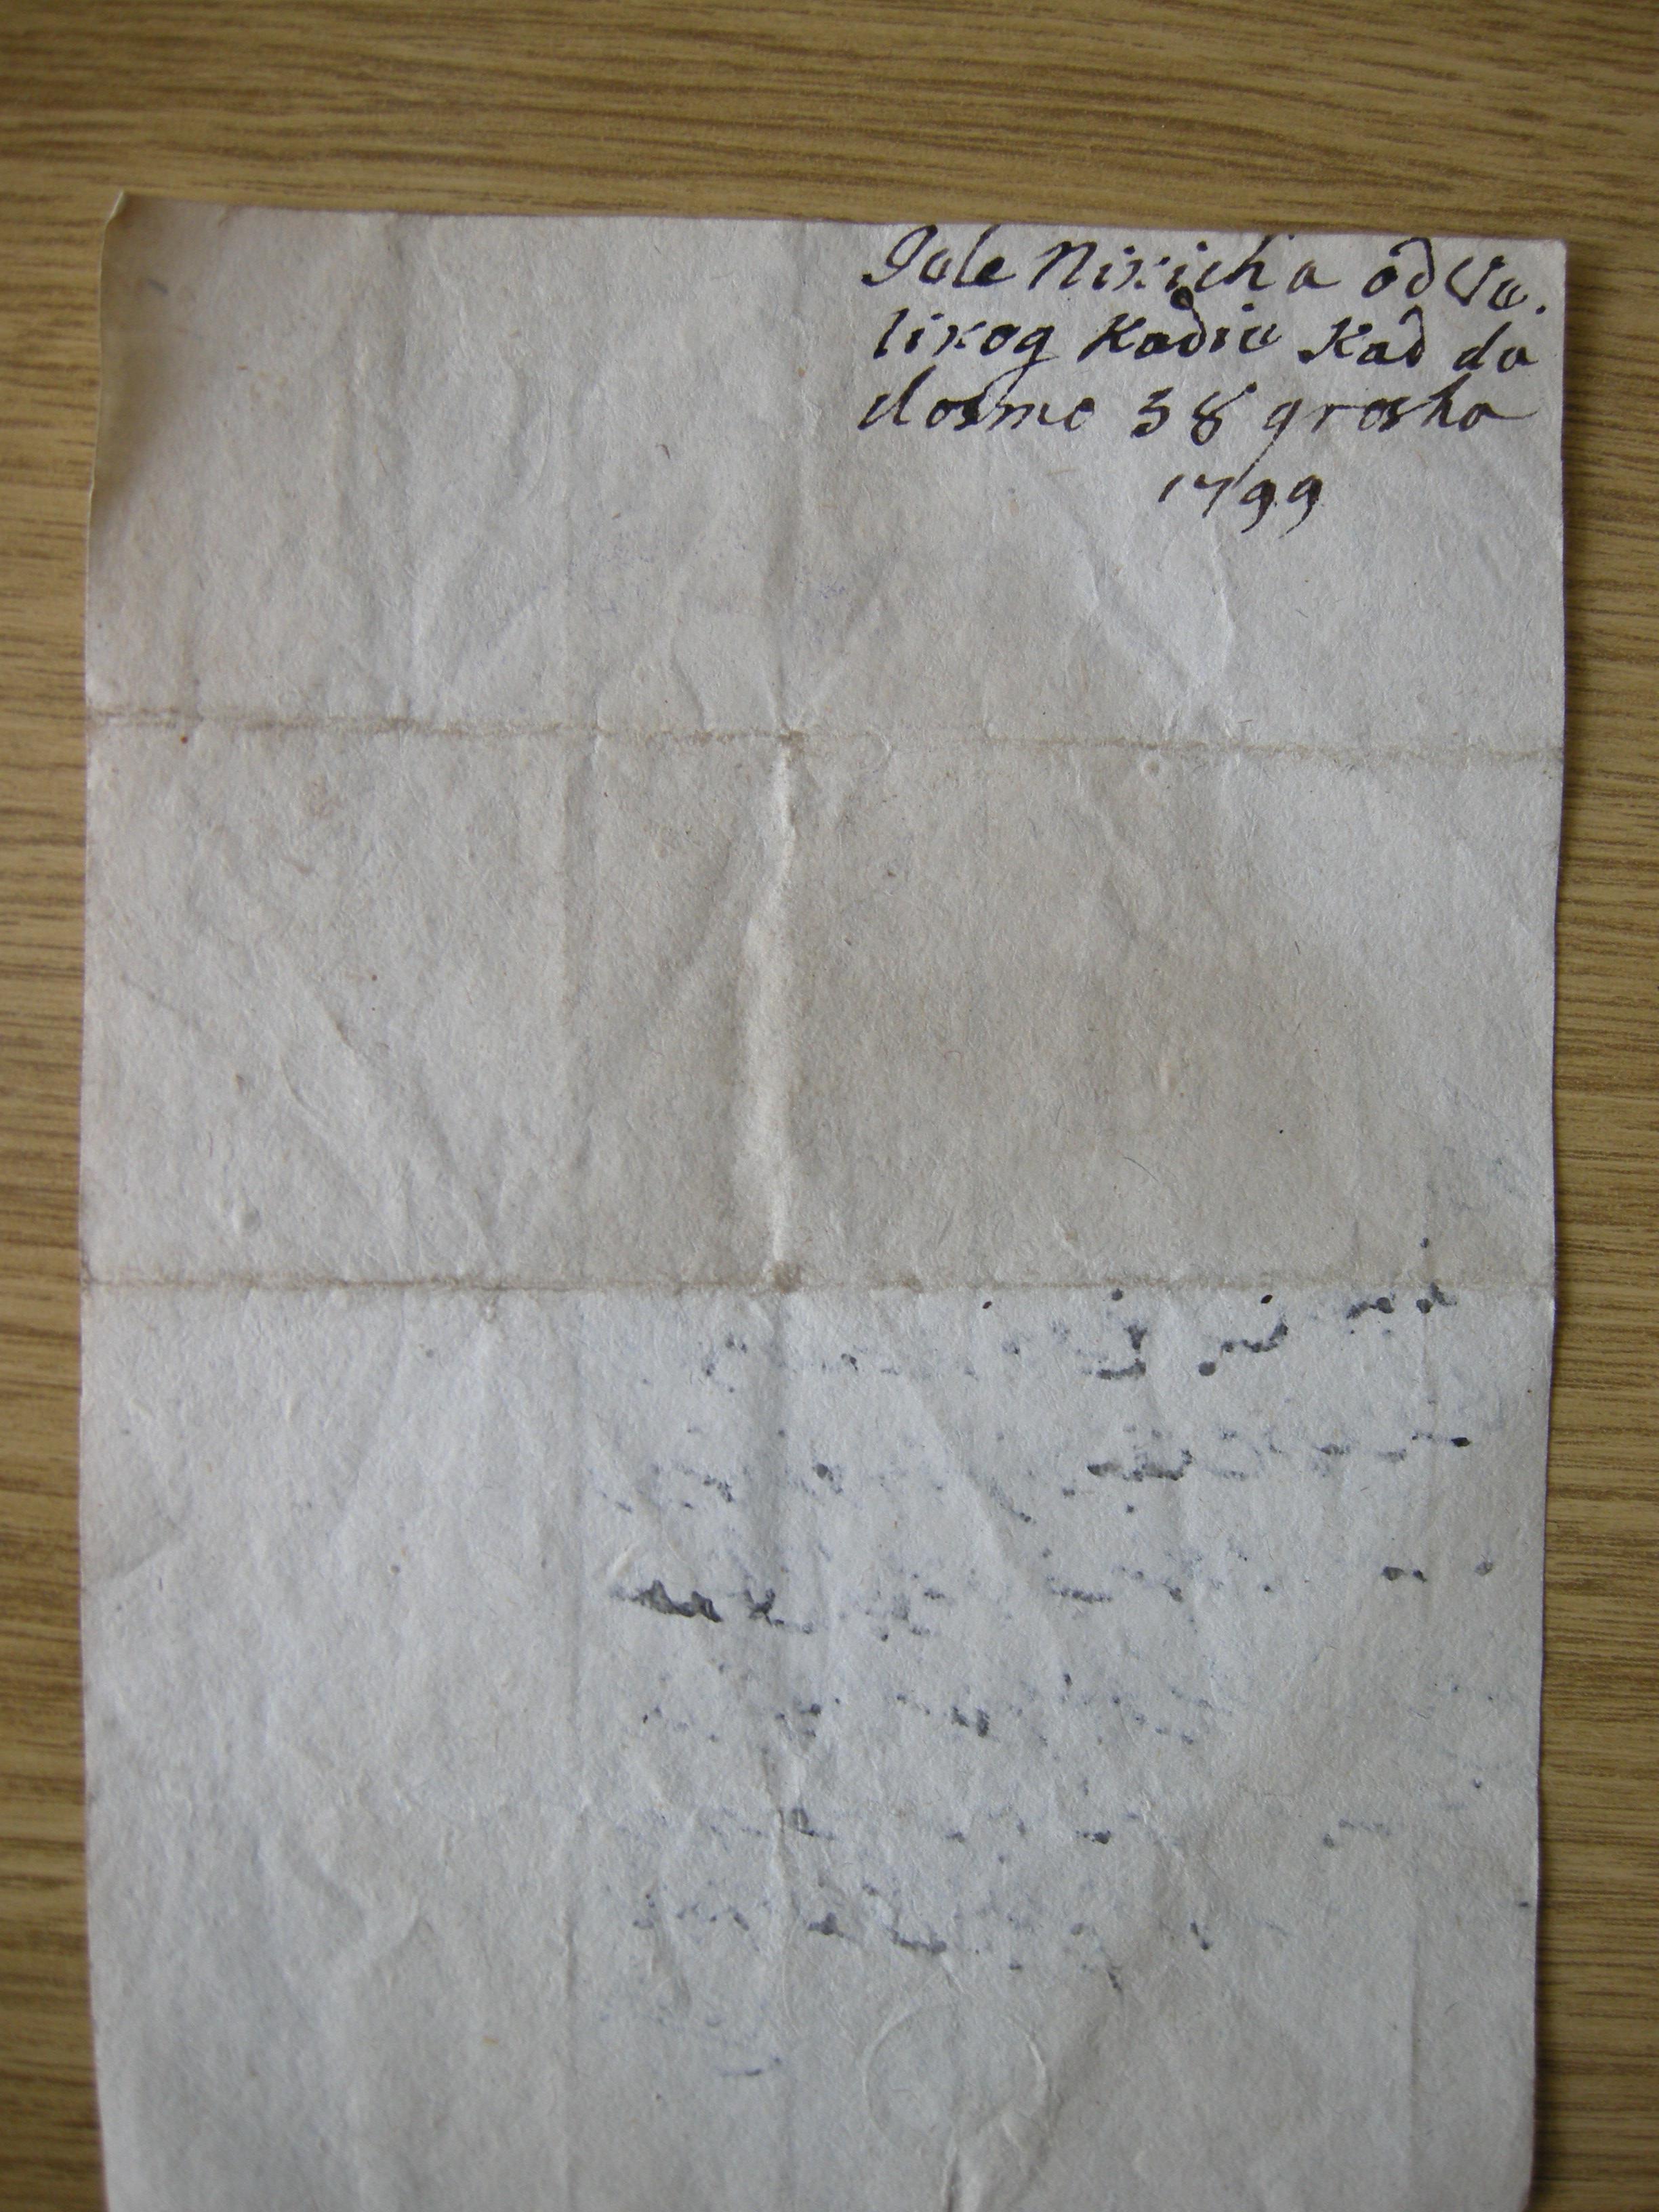 Jale Nikicha od Va.
likog Kadie Kad da
dosmo 38 grosha
1799